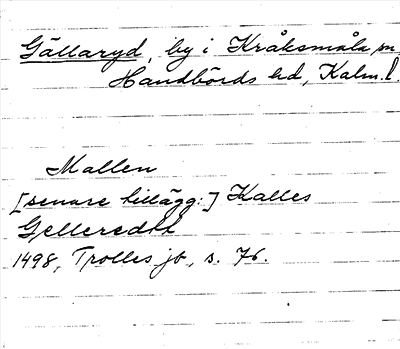 Gällaryd, by i Kråksmåla sn,
Handbörds hd, Kalm. l.
Mallen
[senare tillägg:] Kalles
Gelleredh
1498, Trolles jb, s. 76.